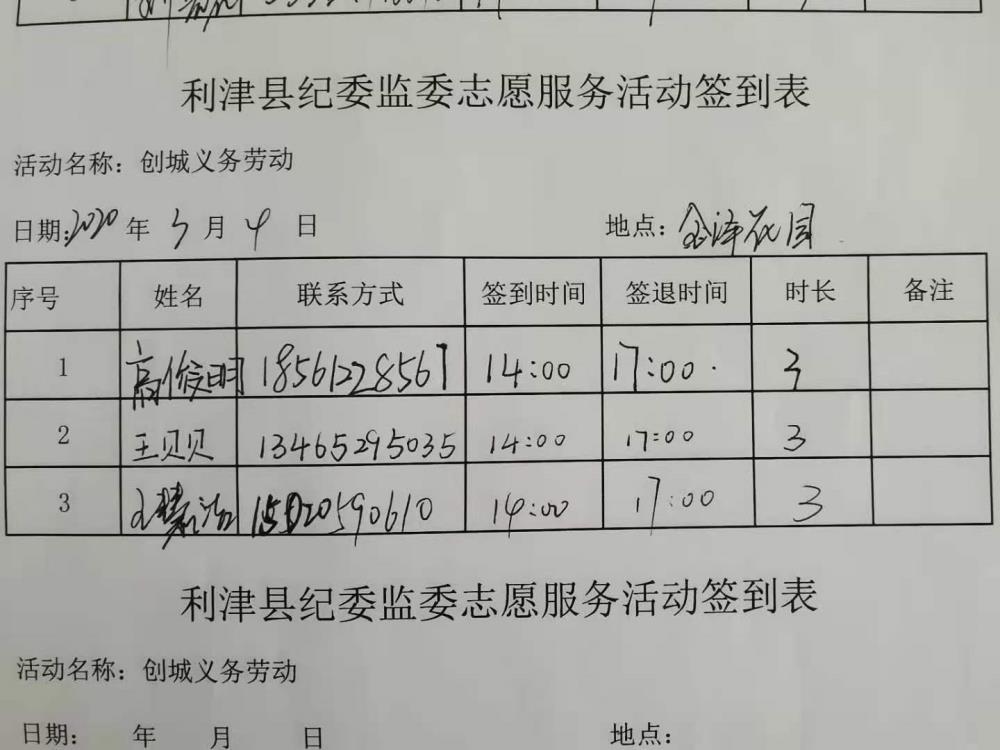 利津县纪委监委志愿服务活动签到表
活动名称：创城义务劳动
日期：2020 年 3 月 4 日 地点：金泽花园
序号 姓名 联系方式 签到时间 签退时间 时长 备注
1 高俊明 18561228567 14:00 17:00 3
2 王贝贝 13465295035 14:00 17:00 3
3 14:00 17:00 3
利津县纪委监委志愿服务活动签到表
活动名称：创城义务劳动
日期： 年 月 日 地点：